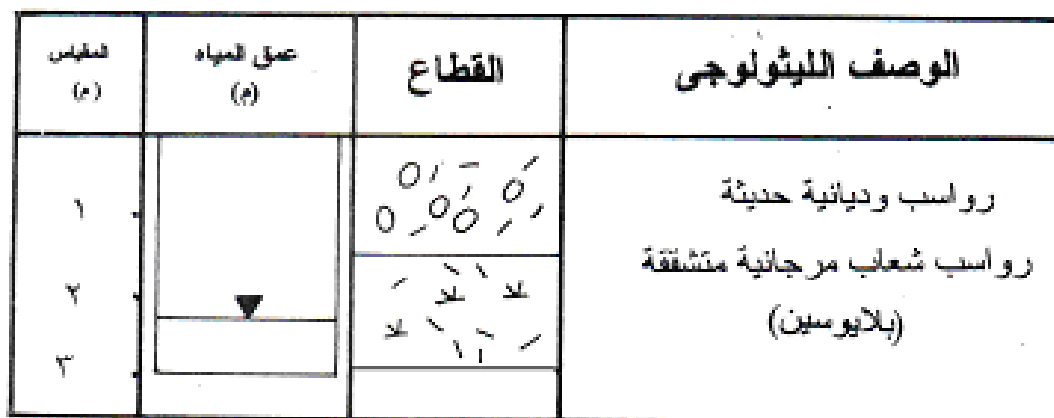 الوصف الليثولوجى
القطاع
عمق المياه
(م)
المقياس
(م)
رواسب وديانية حديثة
رواسب شعاب مرجانية متشققة
(بلايوسين)
١
٢
٣